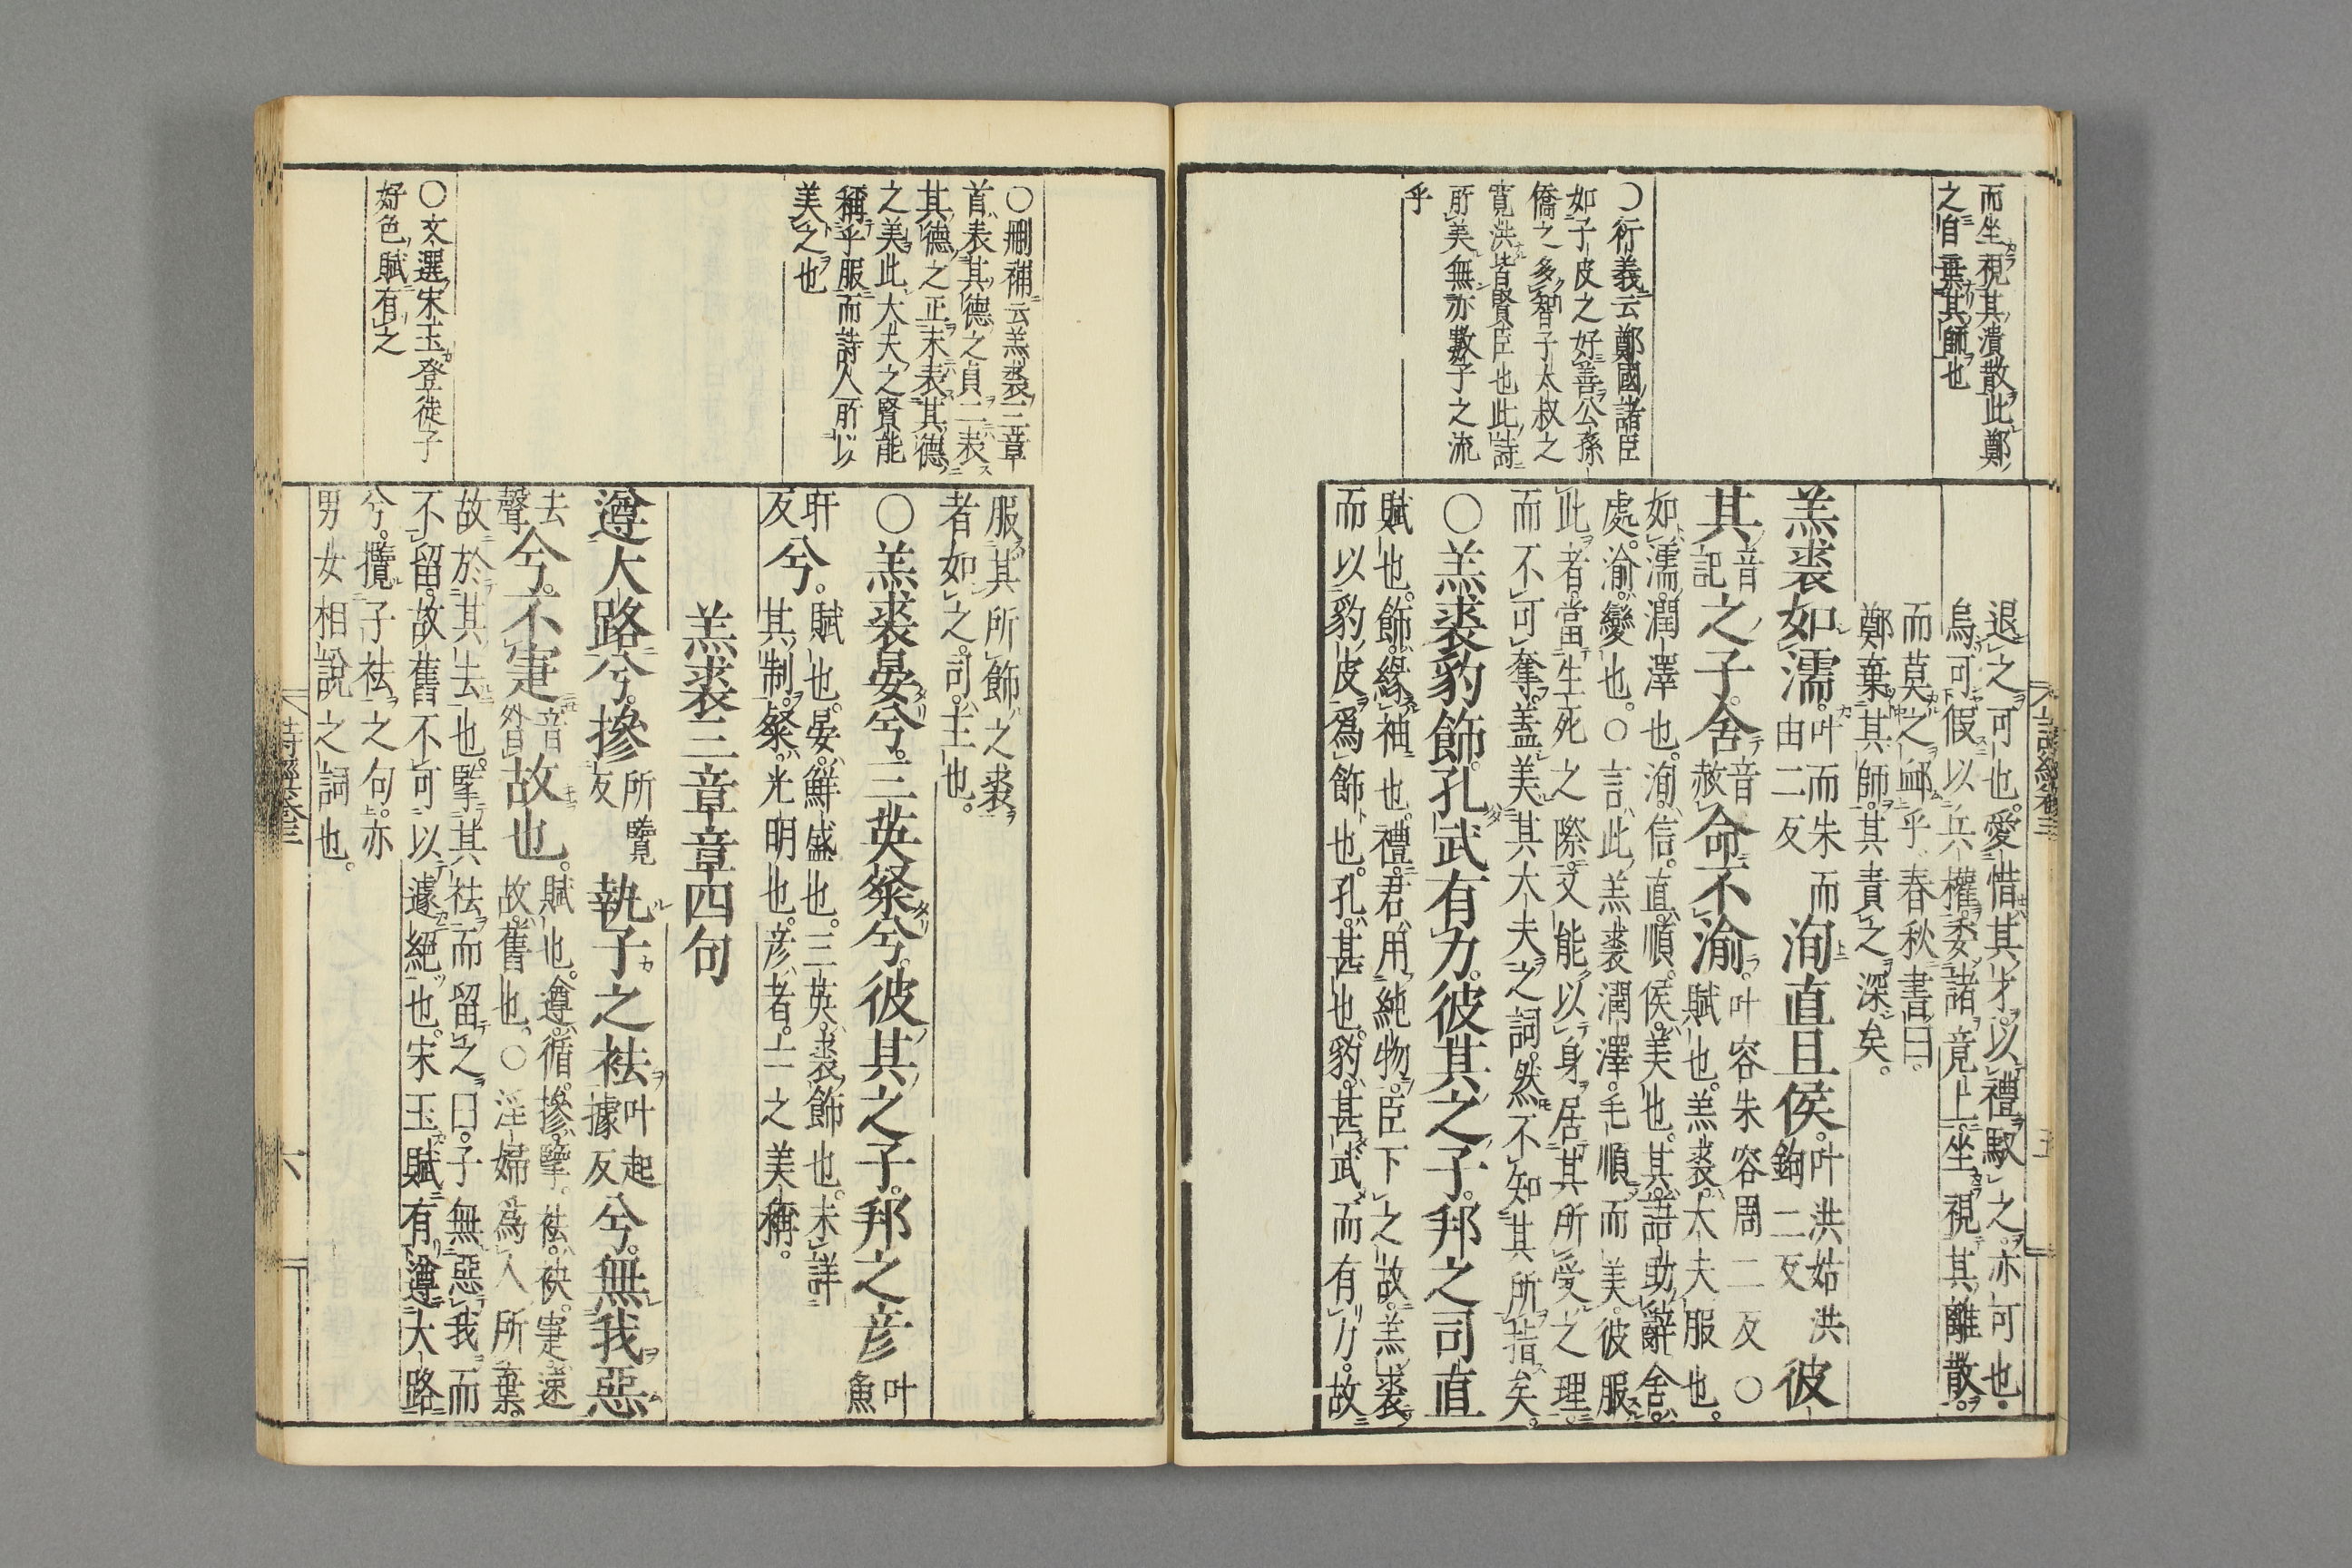 而坐視其潰散此鄭
之自棄其師也
〇行義云鄭國諸臣
如子皮之好善公孫
僑之多智子太叔之
寛洪皆賢臣也此詩
所美無亦數子之流
乎
詩經卷三
五
退之可也。愛惜其才。以禮馭之。亦可也。
烏可假以兵權。委諸竟上。坐視其離散。
而莫之卹乎。春秋書曰。
鄭棄其師。其責之深矣。
羔裘如濡。叶而朱而由二反洵直且侯。叶洪姑洪鉤二反彼
其音記之子。舍音赦命不渝。叶容朱容周二反〇賦也。羔裘。大夫服也。
如濡。潤澤也。洵。信。直。順。侯。美也。其。語助辭。舍。
處。渝。變也。〇言此羔裘潤澤。毛順而美。彼服
此者。當生死之際。又能以身居其所受之理。
而不可奪。蓋美其大夫之詞。然不知其所指矣。
〇羔裘豹飾。孔武有力。彼其之子。邦之司直
賦也。飾。緣袖也。禮。君用純物。臣下之。故羔裘
而以豹皮爲飾也。孔。甚也。豹。甚武而有力。故
〇刪補云羔裘三章
首表其德之貞二表
其德之正末表其德
之美此大夫之賢能
稱乎服而詩人所以
美之也
〇文選宋玉登徒子
好色賦有之
服其所飾之裘
者如之。司。主也。
〇羔裘晏兮。三英粲兮。彼其之子。邦之彦叶魚
旰反兮。賦也。晏。鮮盛也。三英。裘飾也。未詳
其制。粲。光明也。彦者。士之美稱。
羔裘三章章四句
遵大路兮。摻所覽反執子之袪叶起據反兮。無我惡
去聲兮。不寁音昝故也。賦也。遵。循。摻。擥。袪。袂。寁。速
故。舊也。〇淫婦爲人所棄。
故於其去也。擥其袪而留之曰。子無惡我而
不留。故舊不可以遽絕也。宋玉賦有遵大路
兮。攬子袪之句。亦
男女相說之詞也。
詩經卷三
六